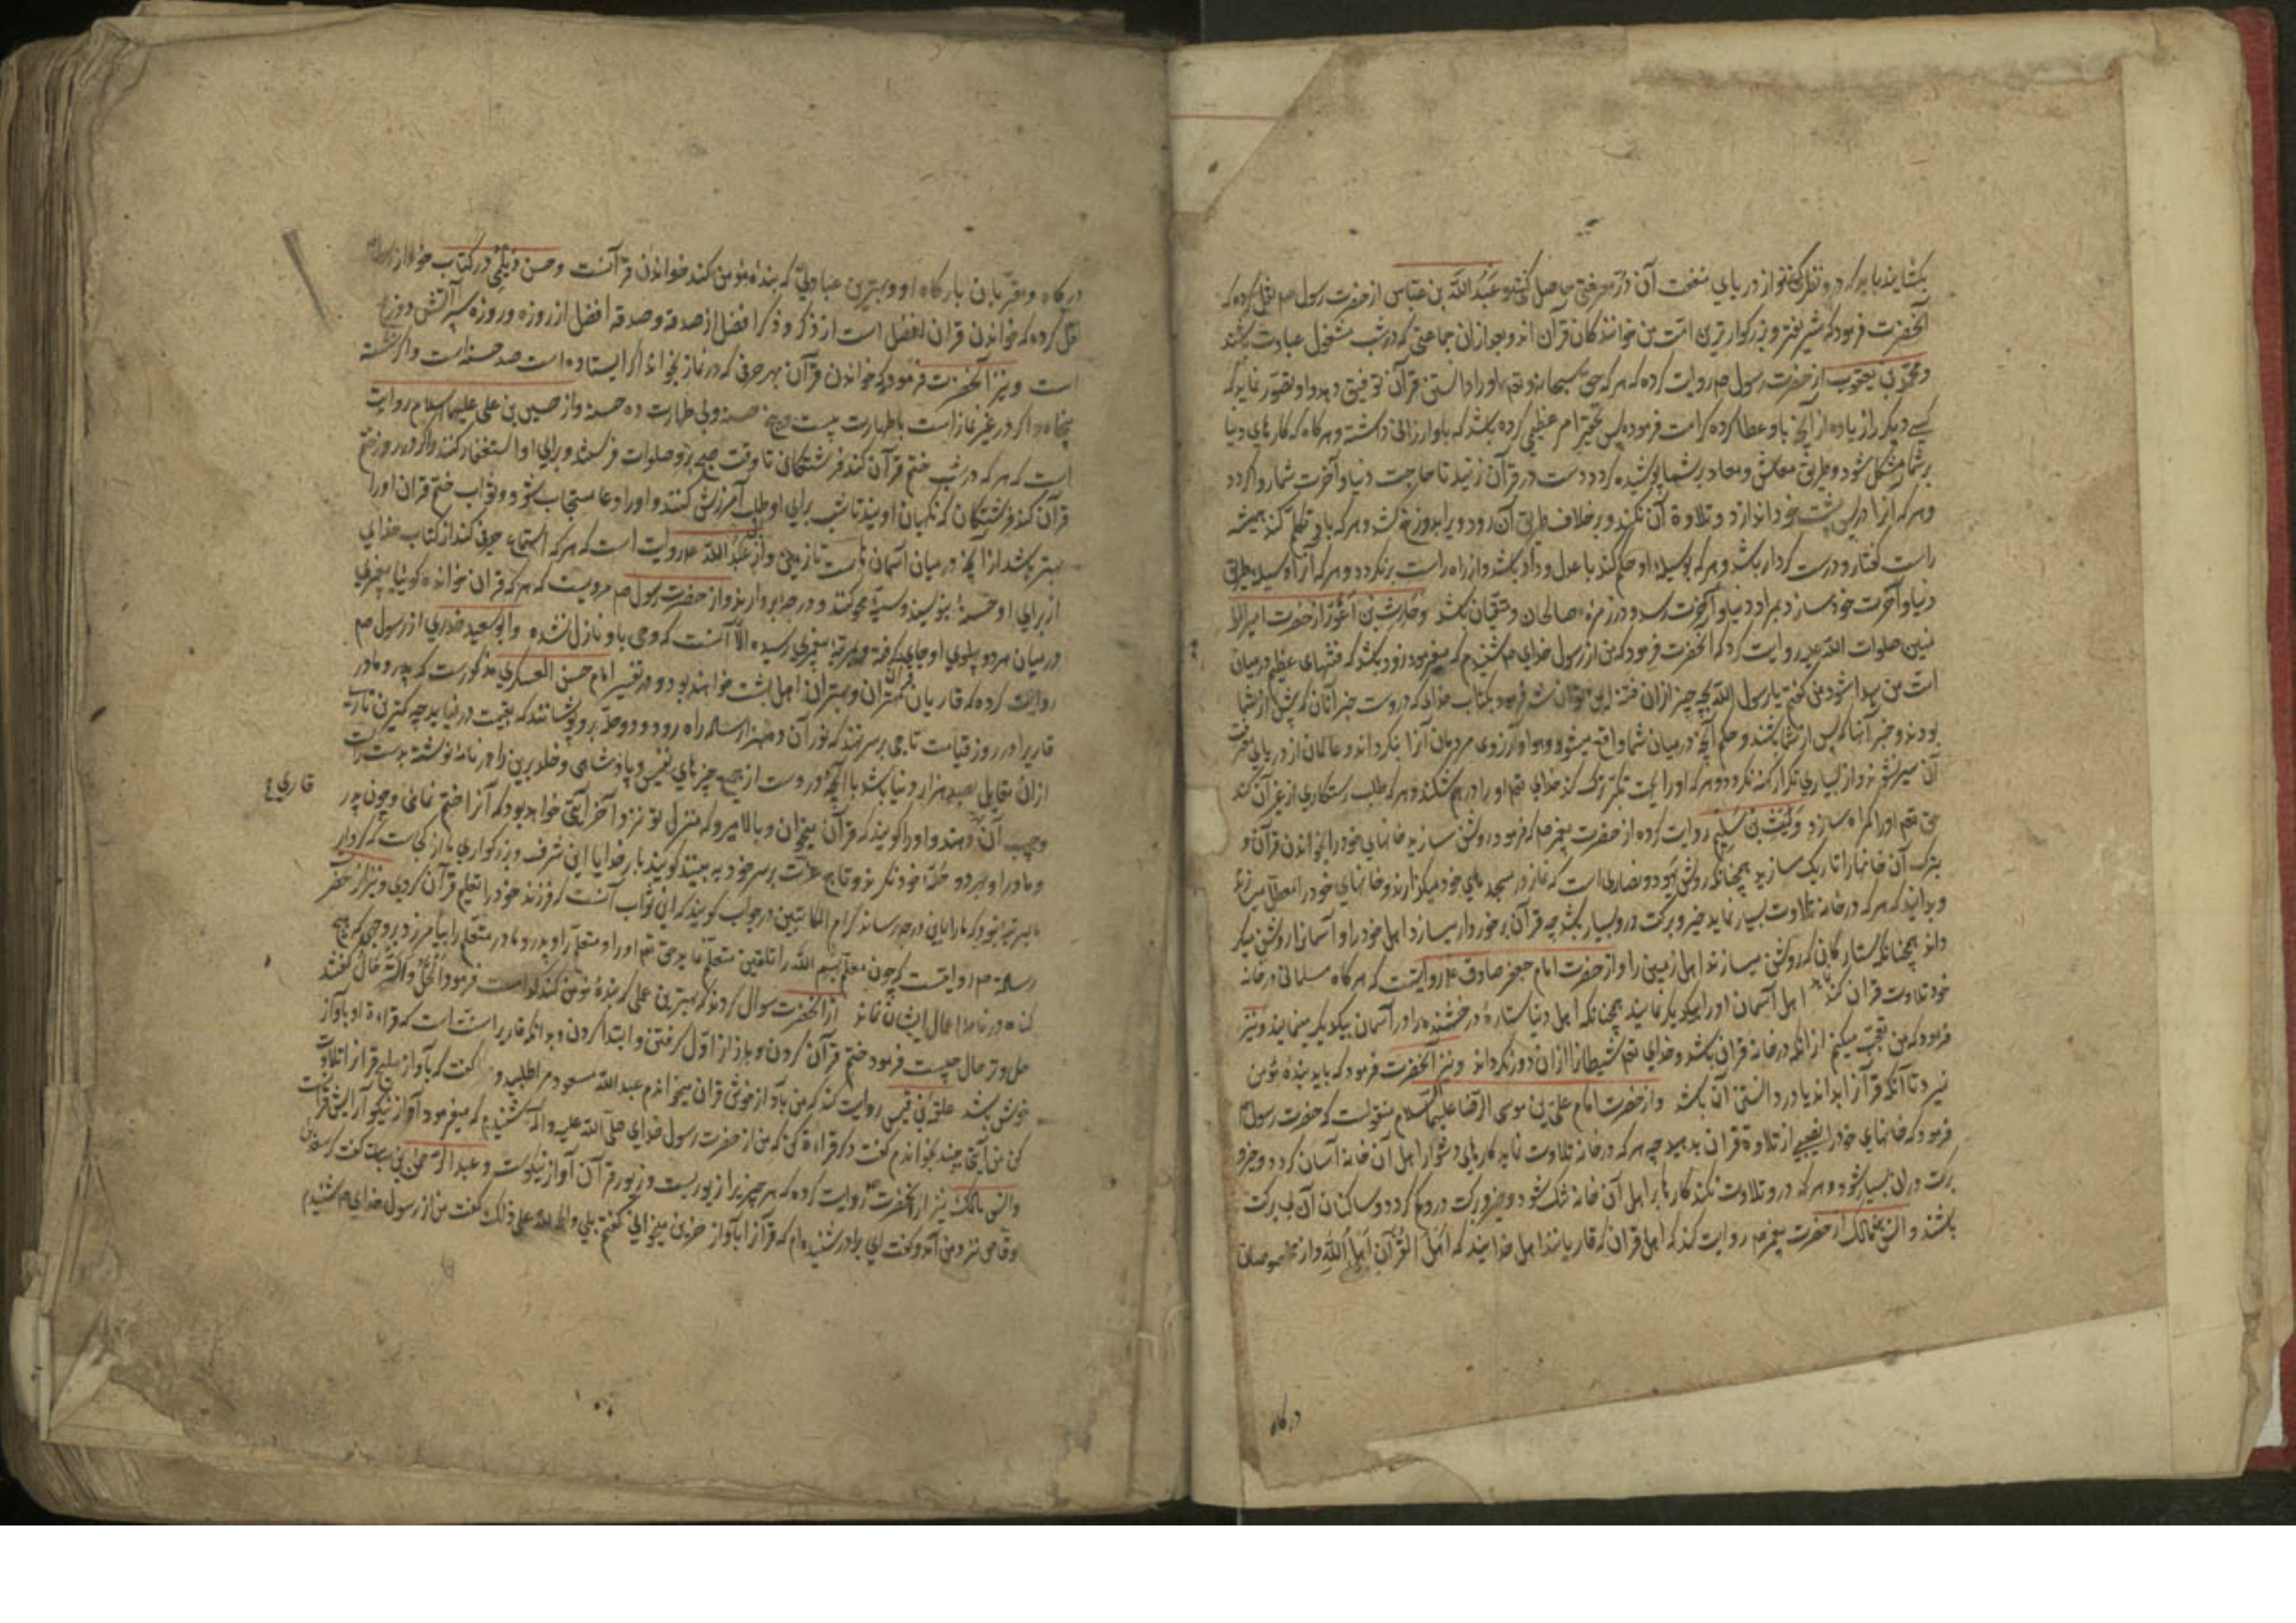 بکشایند باید که در و نظر کنند تا از دریای منفعت آن در معرفتی حاصل کنند و عبد الله بن عباس از حضرت رسول صم نقل کرده که
آنحضرت فرمود که شریفتر و بزرکوارترین امت من خوانندکان قرآن اند و بعد از آن جماعتی که در شب مشغول عبادت باشند
و محمد بن یعقوب از حضرت رسول صم روایت کرده که هر که حق سبحانه و تعم او را دانستن قرآن توفیق دهد و او تصور نماید که
کسی دیکر را زیاده از آنچه باو عطا کرده کرامت فرموده پس تحقیر امر عظیمی کرده باشد که باو ارزانی داشته و هر کاه که کارهای دنیا
بر شما مشکل شود و طریق معاش و معاد بر شما پوشیده کردد دست در قرآن زنید تا حاجت دنیا و آخرت شما روا کردد
و هر که آنرا در پس پشت خود اندازد و تلاوة آن نکند و بر خلاف طریق آن رود ویرا بدوزخ کشد و هر که باو تکلم کند همیشه
راست کفتار و درست کردار باشد و هر که بوسیله او حکم کند با عدل و داد باشد و از راه راست برنکردد و هر که آنرا وسیله طریق
دنیا و آخرت خود سازد بمراد دنیا و آخرت رسد و در زمره صالحان و متقیان باشد و حارث بن اعور از حضرت امیر الم
منین صلوات الله علیه روایت کرد که آنحضرت فرمود که من از رسول خدای صم شنیدم که میفرمود زود باشد که فتنهای عظیم در میان
امت من پیدا شود من کفتم یا رسول الله بچه چیز از آن فتنه ایمن توان شد فرمود بکتاب خدای که دروست خبر آنان که پیش از شما
بودند و خبر آنها که پس از شما باشند و حکم آنچه در میان شما واقع میشود و هوا و آرزوی مردمان آنرا نکرداند و عالمان از دریای معرفت
آن سیر نشوند و از بسیاری تکرار کهنه نکردد و هر که او را بجهت تکبر ترک کند خدای تعم او را در هم شکند و هر که طلب رستکاری از غیر آن کند
حق تعم او را کمراه سازد و لیث بن سلیم روایت کرده از حضرت پیغمبر صم که فرمود روشن سازید خانهای خود را بخواندن قرآن و
بترک آن خانها را تاریک سازید همچنانکه روش یهود و نصاری است که نماز در مسجدهای خود میکزارند و خانهای خود را معطل میدارند
و بدانید که هر که در خانه تلاوت بسیار نماید خیر و برکت درو بسیار باشد چه قرآن برخوردار میسازد اهل خود را و آسمانرا روشن میکر
داند همچنانکه ستارکانی که روشن میسازند اهل زمین را و از حضرت امام جعفر صادق ع روایتست که هر کاه مسلمانی در خانه
خود تلاوت قرآن کند اهل آسمان او را بیکدیکر نمایند همچنانکه اهل دنیا ستارهٔ درخشنده را در آسمان بیکدیکر مینمایند و نیز
فرمود که من تعجب میکنم از آنکه در خانه قرآن باشد و خدای تعم شیطانرا از آن دور نکرداند و نیز آنحضرت فرمود که باید بندهٔ مؤمن
نمیرد تا آنکه قرآنرا بداند یا در دانستن آن باشد و از حضرت امام علی بن موسی الرضا علیهما السلام منقولست که حضرت رسول صم
فرمود که خانهای خود را نصیبی از تلاوة قرآن بدهید چه هر که در خانه تلاوت نماید کارهای دشوار اهل آن خانه آسان کردد و خیر و
برکت در آن بسیار شود و هر که درو تلاوت نکند کارها بر اهل آن خانه تنک شود و خیر و برکت درو کم کردد و ساکنان آن بی برکت
باشند و انس بن مالک از حضرت پیغمبر صم روایت کند که اهل قرآن که قاریانند اهل خدایند که اهل القرآن اهل الله و از خواص
درکاه
درکاه و مقربان بارکاه او و بهترین عبادتی که بنده مؤمن کند خواندن قرآنست و حسن دیلمی در کتاب خود از
نقل کرده که خواندن قرآن افضل است از ذکر و ذکر افضل از صدقه و صدقه افضل از روزه و روزه سپر آتش دوزخ
است و نیز آنحضرت فرمود که خواندن قرآن بهر حرفی که در نماز بخواند اکر ایستاده است صد حسنه است و اکر نشسته
پنجاه و اکر در غیر نماز است باطهارت بیست و پنج حسنه و بی طهارت ده حسنه و از حسین بن علی علیهما السلام روایت
است که هر که در شب ختم قرآن کند فرشتکان تا وقت صبح برو صلوات فرستند و برای او استغفار کنند و اکر در روز ختم
قرآن کند فرشتکان که نکهبان اویند تا شب برای او طلب آمرزش کنند و او را دعا مستجاب شود و ثواب ختم قرآن او را
بهتر باشد از آنچه در میان آسمان است تا زمین و از عبد الله ع روایت است که هر که استماع حرفی کند از کتاب خدای
از برای او حسنهٔ بنویسند و سیئهٔ محو کنند و درجهٔ بردارند و از حضرت رسول صم مرویست که هر که قرآن خوانده کوئیا پیغمبری
در میان هر دو پهلوی او جای کرفته و بمرتبهٔ پیغمبری رسیده الا آنست که وحی باو نازل نشده و ابو سعید خدری از رسول صم
روایت کرده که قاریان قرآن مهتران و بهتران اهل بهشت خواهند بود و در تفسیر امام حسن العسکری مذکورست که پدر و مادر
قاریرا در روز قیامت تاجی بر سر نهند که نور آن ده هزار ساله راه رود و دو حله برو پوشانند که بقیمت در نیاید چه کمترین تاری
از آن مقابل بصد هزار دنیا باشد با آنچه دروست از جمیع چیزهای نفیس و پادشاهی و خلد برین را در نامه نوشته بدست راست
و چپ آن دهند و او را کویند که قرآن میخوان و بالا میرو که منزل تو نزد آخر آیتی خواهد بود که آنرا ختم نمائی و چون پدر
قاری ع
و مادر او بهر دو حلهٔ خود نکرند و تاج عزت بر سر خود به بینند کویند بار خدایا این شرف و بزرکواری ما از کجاست که کردار
ما بمرتبهٔ نبود که ما را باین درجه رساند کرام الکاتبین در جواب کویند که این ثواب آنست که فرزند خود را تعلیم قرآن کردی و نیز از حضر
رسالة صم روایتست که چون معلم بسم الله را تلقین متعلم نماید حق تعم او را و متعلم را و پدر و مادر متعلم را بیامرزد بر وجهی که هیچ
کناه در نامهٔ اعمال ایشان نماند از آنحضرت سوال کردند که بهترین عملی که بندهٔ مؤمن کند کدامست فرمود الحال و المرتحال کفتند
حل و ترحال چیست فرمود ختم قرآن کردن و باز از اول کرفتن و ابتدا کردن و بدانکه قاریرا سنت است که قراءة او بآواز
خوش باشد علقمة بن قیس روایت کند که من بآواز خوش قرآن میخواندم عبد الله مسعود مرا طلبید و کفت که بآواز ملیح قرآنرا تلاوت
کن من آیتی چند بخواندم کفت دکر قراءة کن که من از حضرت رسول خدای صلی الله علیه و آله شنیدم که میفرمود آواز نیکو آرایش قرآنست
و انس مالک نیز از آنحضرت روایت کرده که هر چیزیرا زیوریست و زیور قرآن آواز نیکوست و عبد الرحمن بن سایب کفت که سعد بن
وقاص نزد من آمد و کفت ای برادر شنیده ام که قرآنرا بآواز حزین میخوانی کفتم بلی و الحمد لله علی ذلک کفت من از رسول خدای صم شنیدم